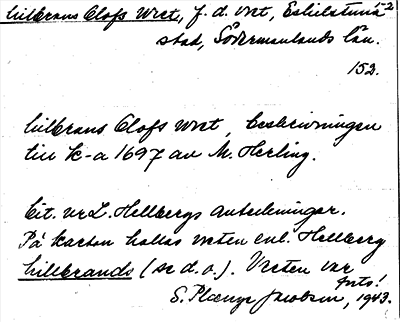 hillbrans Olofs Vret, f. d. vret, Eskilstuna
stad, Södermanlands län.
152.
hillbrans Olofs Vret, beskrivningen
till k-a 1697 av M. Herling.
Cit. ur L. Hellbergs anteckningar.
På kartan kallas vreten enl. Hellberg
hillbrands (se d.o.). Vreten var
forts!
S. Jacobson, 1943.